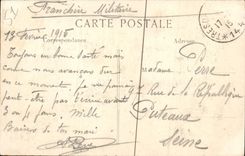 Franchise Militaire
CARTE POSTALE
13 février 1915
Correspondance
Adresse
Toujours en bonne santé mais
comme nous avançons
en ce moment, je ne
peut-être pas t'écrire avant
3 ou 4 jours. Mille
Baisers de ton mari
Madame
Rue de la République
Puteaux
Seine
TRÉSOR
17
15